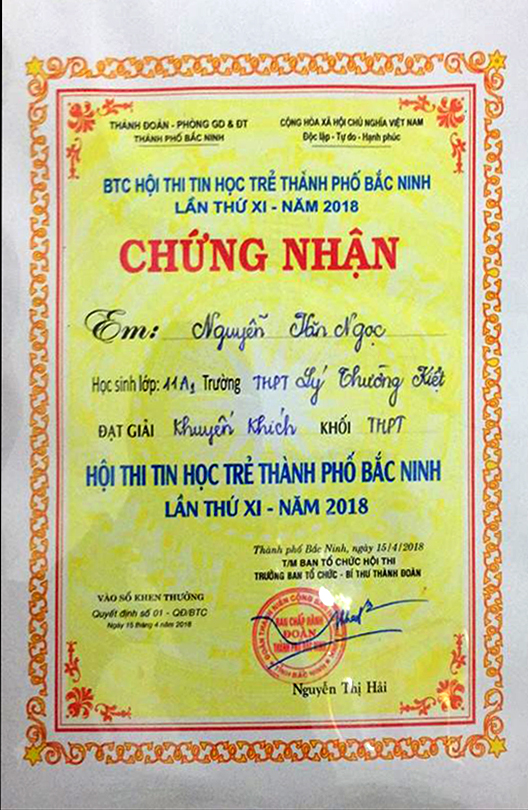 THÀNH ĐOÀN - PHÒNG GD & ĐT
THÀNH PHỐ BẮC NINH
CỘNG HÒA XÃ HỘI CHỦ NGHĨA VIỆT NAM
Độc lập - Tự do - Hạnh phúc
BTC HỘI THI TIN HỌC TRẺ THÀNH PHỐ BẮC NINH
LẦN THỨ XI - NĂM 2018
CHỨNG NHẬN
Em: Nguyễn Văn Ngọc
Học sinh lớp: 11A1 Trường THPT Lý Thường Kiệt
ĐẠT GIẢI Khuyến khích KHỐI THPT
HỘI THI TIN HỌC TRẺ THÀNH PHỐ BẮC NINH
LẦN THỨ XI - NĂM 2018
Thành phố Bắc Ninh, ngày 15/4/2018
T/M BAN TỔ CHỨC HỘI THI
TRƯỞNG BAN TỔ CHỨC - BÍ THƯ THÀNH ĐOÀN
VÀO SỔ KHEN THƯỞNG
Quyết định số 01 - QĐ/BTC
Ngày 15 tháng 4 năm 2018
BAN CHẤP HÀNH
ĐOÀN
THÀNH PHỐ BẮC NINH
TỈNH BẮC NINH
Nguyễn Thị Hải